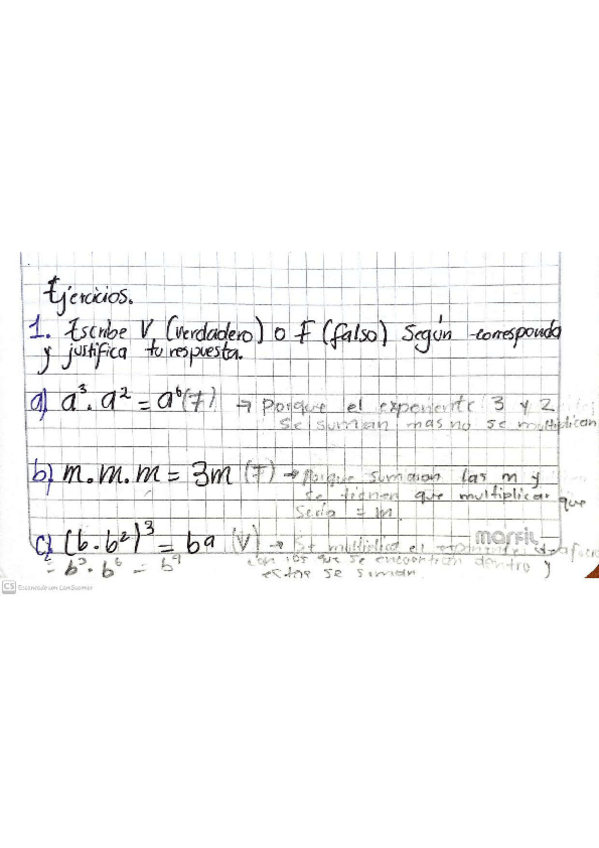 Ejercicios.
1. Escribe V (verdadero) o F (falso) Según corresponda
y justifica tu respuesta.
a) a³ . a² = a⁶ (F) → Porque el exponente 3 y 2
se suman mas no se multiplican
b) m . m . m = 3m (F) → Porque sumaron las m y
se tienen que multiplicar que
Seria = m
c) (b . b²)³ = b9 (V) → Se multiplica el exponente de afuera
con los que se encuentran dentro y
= b³ . b⁶ = b⁹ estos se suman
marfil
CS Escaneado con CamScanner